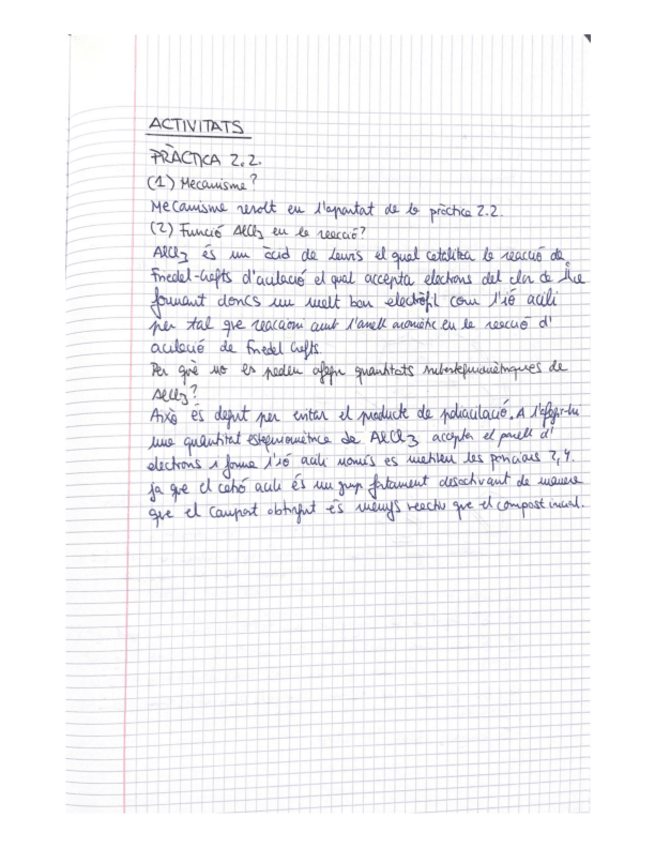 ACTIVITATS
PRÀCTICA 2.2.
(1) Mecanisme?
Mecanisme resolt en l'apartat de la pràctica 2.2.
(2) Funció AlCl3 en la reacció?
AlCl3 és un àcid de Lewis el qual catalitza la reacció de
Friedel-Crafts d'acilació el qual accepta electrons del clor de
formant doncs un molt bon electròfil com l'ió acili
per tal que reaccioni amb l'anell aromàtic en la reacció d'
acilació de Friedel Crafts.
Per què no es poden afegir quantitats subestequiomètriques de
AlCl3?
Això és degut per evitar el producte de poliacilació. A l'afegir-hi
una quantitat estequiomètrica de AlCl3 accepta el parell d'
electrons i forma l'ió acili només es les posicions 2,4.
ja que el catió acili és un grup fortament desactivant de manera
que el compost obtingut és menys reactiu que el compost inicial.